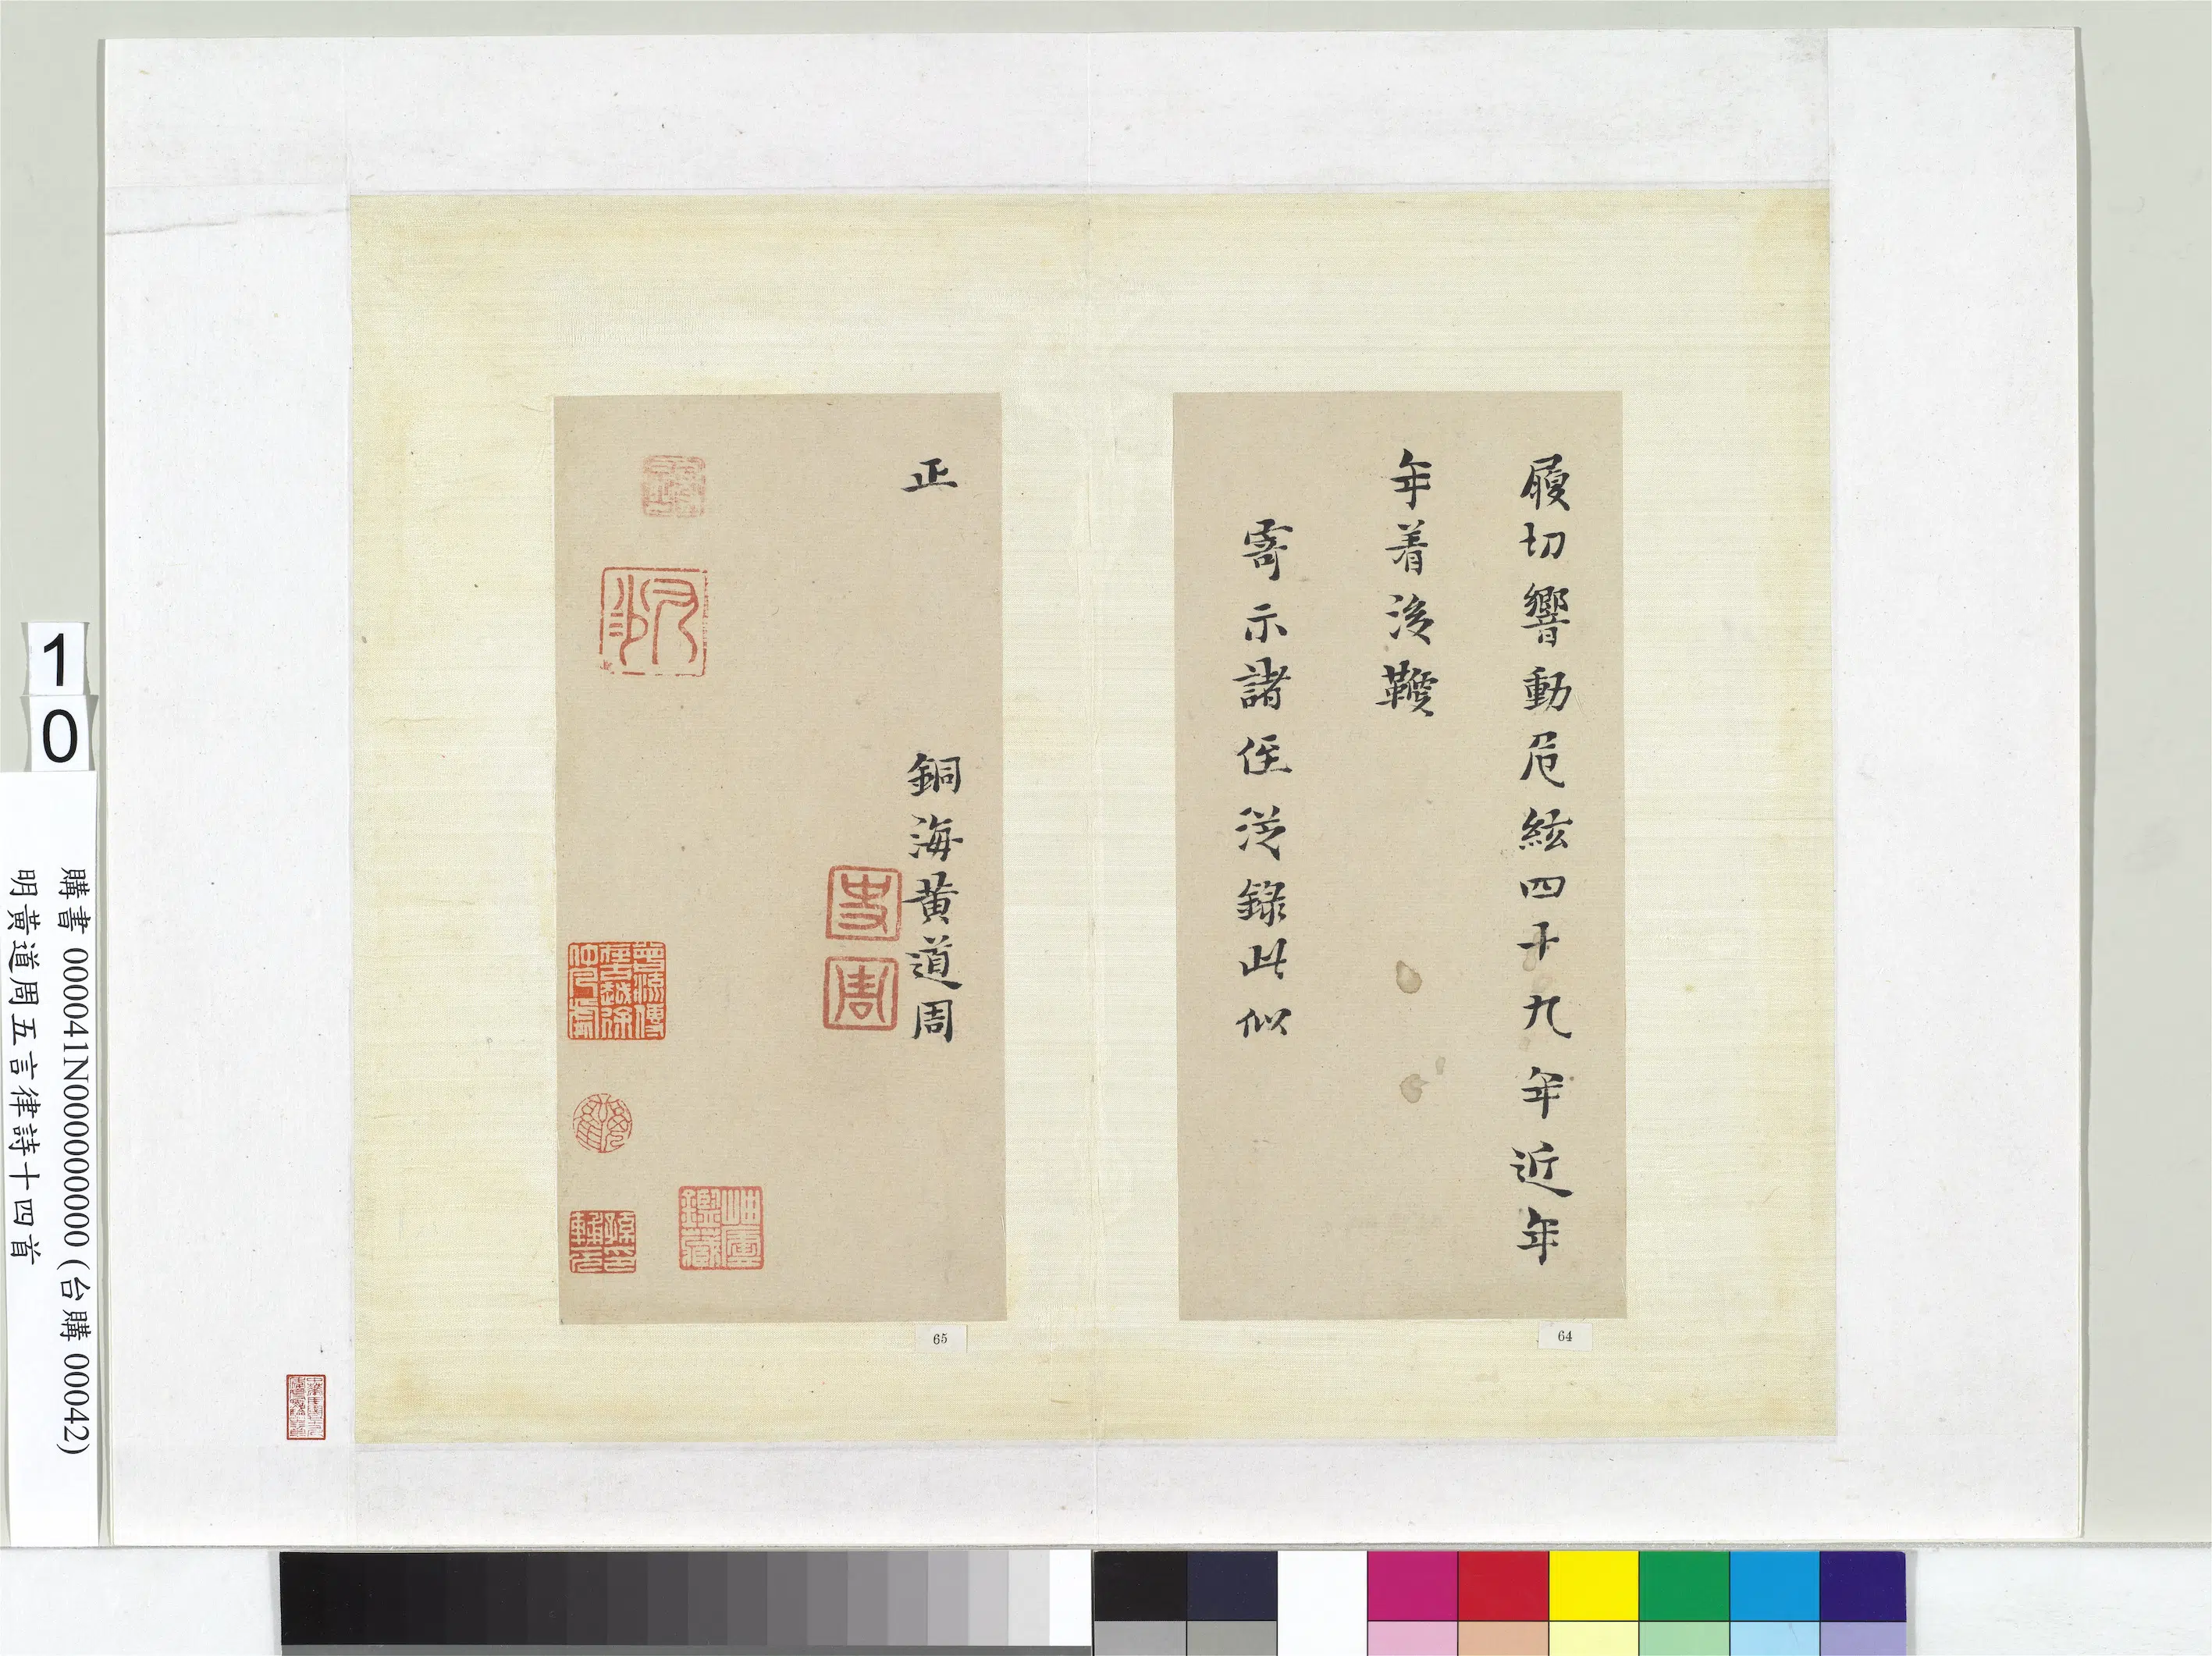 履切響動危絃四十九年近年
年着後鞭
寄示諸侄泛錄此似
正
銅海黃道周
64
65
1
0
購書 000041N000000000 (台購 00042)
明黃道周五言律詩十四首